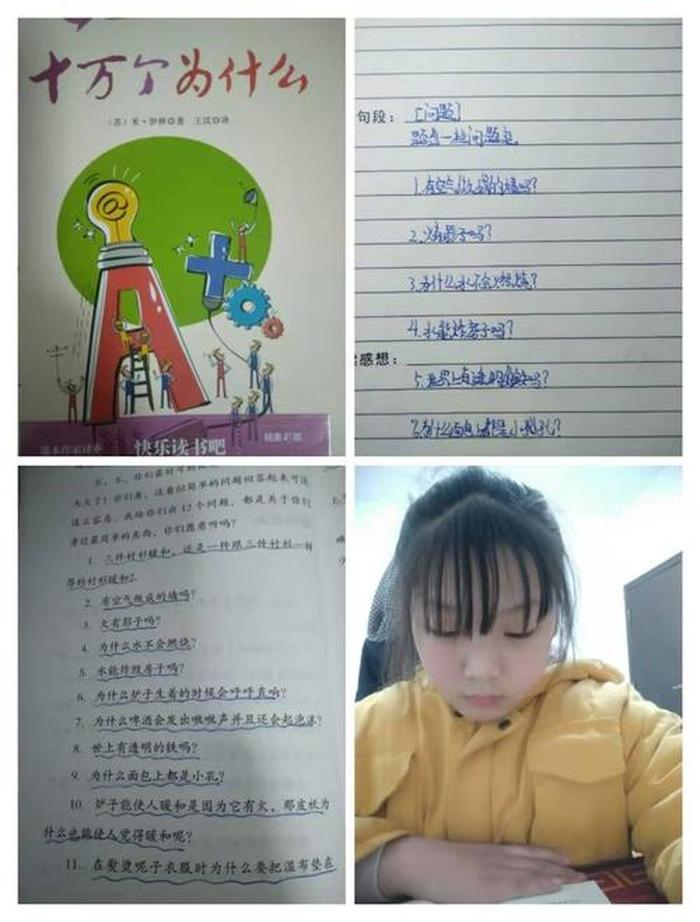 十万个为什么
（苏）米·伊林◎著 王汶◎译
快乐读书吧
句段：[问题]
1.有空气做成的墙吗？
2.火有影子吗？
3.为什么水不会燃烧？
4.水能炸房子吗？
感想：
5.世界上有透明的铁吗？
为什么面包上都是小孔？
太大了！你们看，这看似简单的问题回答起来可没
这么容易。我给你们出12个问题，都是关于你们
身边最简单的东西，你们愿意听吗？
1. 三件衬衫暖和，还是一件跟三件衬衫一样
厚的衬衫暖和？
2. 有空气做成的墙吗？
3. 火有影子吗？
4. 为什么水不会燃烧？
5. 水能炸毁房子吗？
6. 为什么炉子生着的时候会呼呼直响？
7. 为什么啤酒会发出咝咝声并且还会起泡沫？
8. 世上有透明的铁吗？
9. 为什么面包上都是小孔？
10. 炉子能使人暖和是因为它有火，那皮袄为
什么也能使人觉得暖和呢？
11. 在熨烫呢子衣服时为什么要把湿布垫在